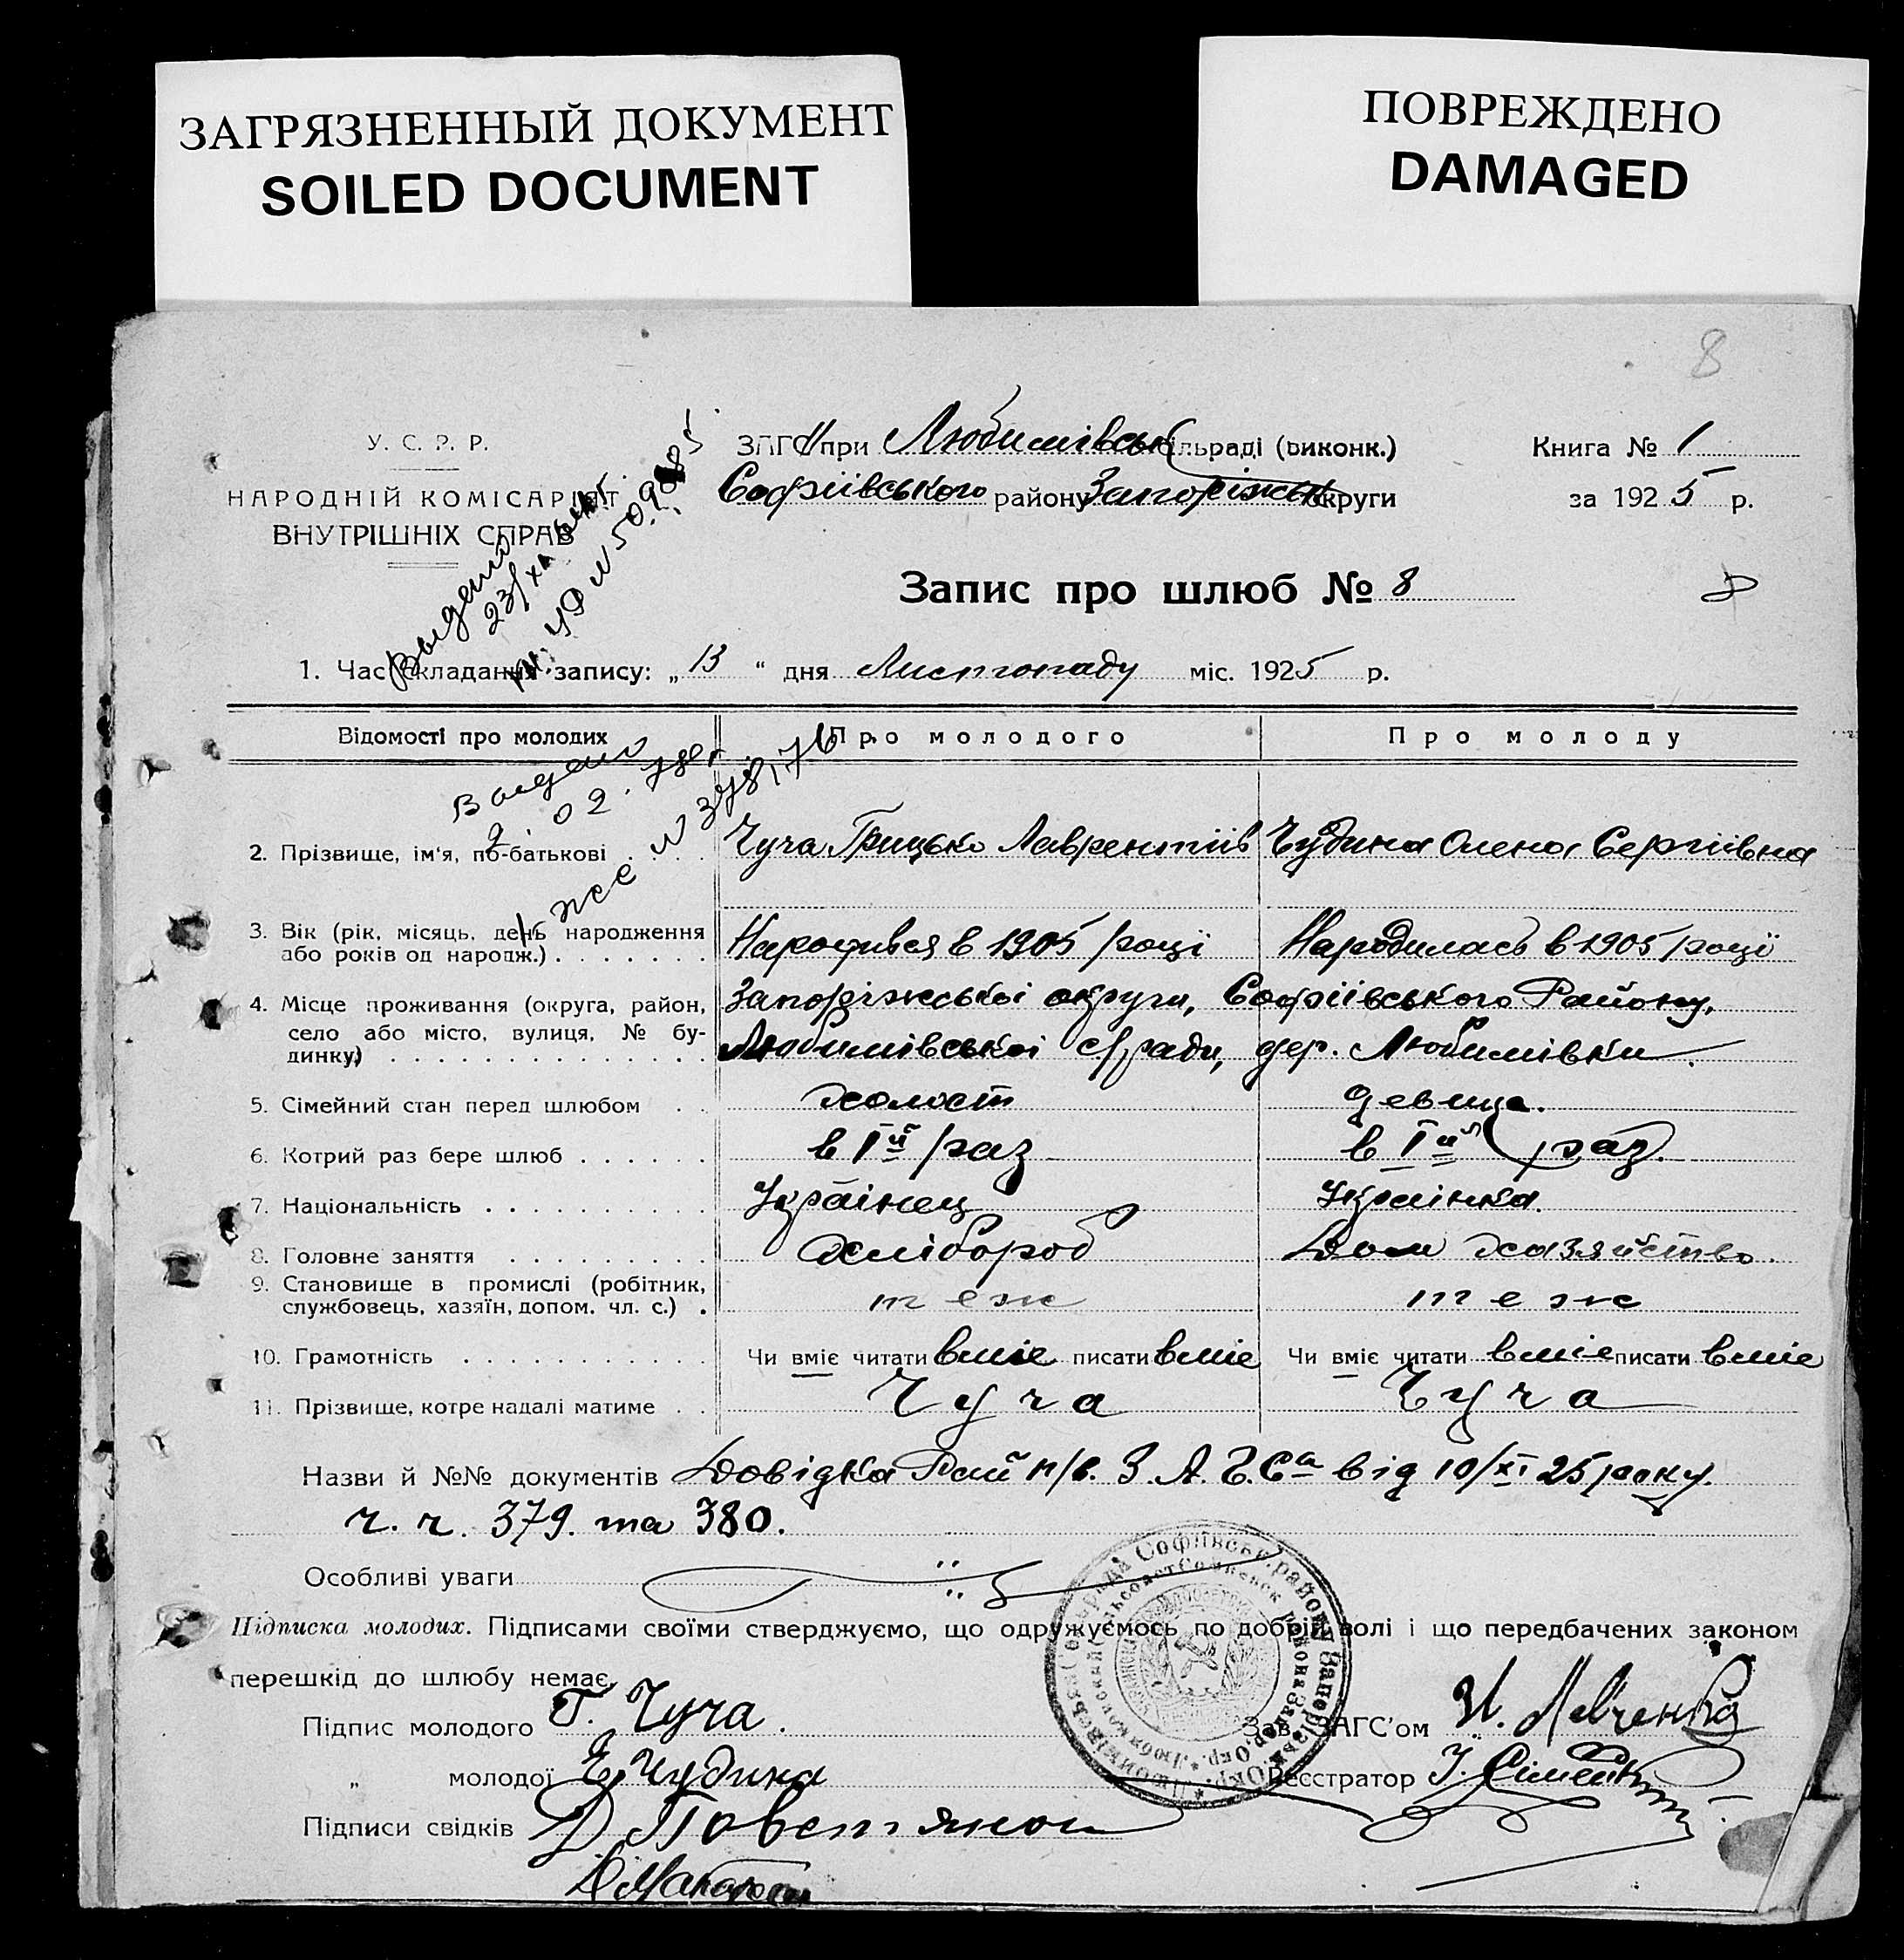 ЗАГРЯЗНЕННЫЙ ДОКУМЕНТ
SOILED DOCUMENT
ПОВРЕЖДЕНО
DAMAGED
8
У. С. Р. Р.
НАРОДНІЙ КОМІСАРІЯТ
ВНУТРІШНІХ СПРАВ
ЗАГС при Любимівськ сільраді (виконк.)
Софіівського району Запоріжськ округи
Книга № 1
за 1925 р.
Запис про шлюб № 8
1. Час складання запису: „13“ дня Листопаду міс. 1925 р.
Відомості про молодих Про молодого Про молоду
2. Прізвище, ім'я, по-батькові . . . . Чуча Грицько Лаврентіів Чудина Олена Сергіівна
3. Вік (рік, місяць, день народження
або років од народж.) . . . . . . . Народився в 1905 році Народилась в 1905 році
4. Місце проживання (округа, район, Запоріжськоі округи, Софіівського Району,
село або місто, вулиця, № бу-
динку) . . . . . . . . . . . . . Любимівськоі с/ради, дер. Любимівки.
5. Сімейний стан перед шлюбом . . холост девица.
6. Котрий раз бере шлюб . . . . . . в Iй раз в Iй раз.
7. Національність . . . . . . . . . . Украінец Украінка.
8. Головне заняття . . . . . . . . . Хлібороб Дом хазяйство.
9. Становище в промислі (робітник,
службовець, хазяїн, допом. чл. с.) . теж теж
10. Грамотність . . . . . . . . . . . Чи вміє читати вміє писати вміє Чи вміє читати вміє писати вміє
11. Прізвище, котре надалі матиме . . Чуча Чуча
Назви й №№ документів Довідка Рай п/в. З. А. Г. Са від 10/XI 25 року.
ч. ч. 379. та 380.
Особливі уваги
Підписка молодих. Підписами своїми стверджуємо, що одружуємось по добрій волі і що передбачених законом
перешкід до шлюбу немає.
Підпис молодого Г. Чуча.
„ молодої Е. Чудина
Підписи свідків Д
Зав. ЗАГС'ом
Реєстратор